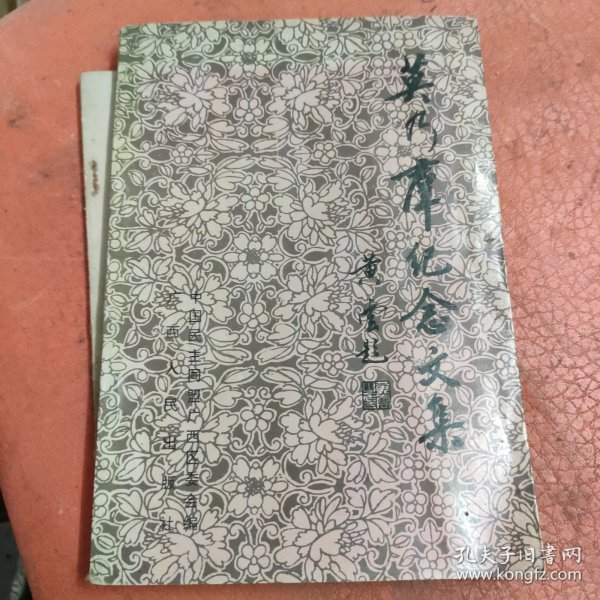 莫乃群纪念文集
黄云题
中国民主同盟广西区委会编
广西人民出版社
孔夫子旧書网
www.kongfz.com